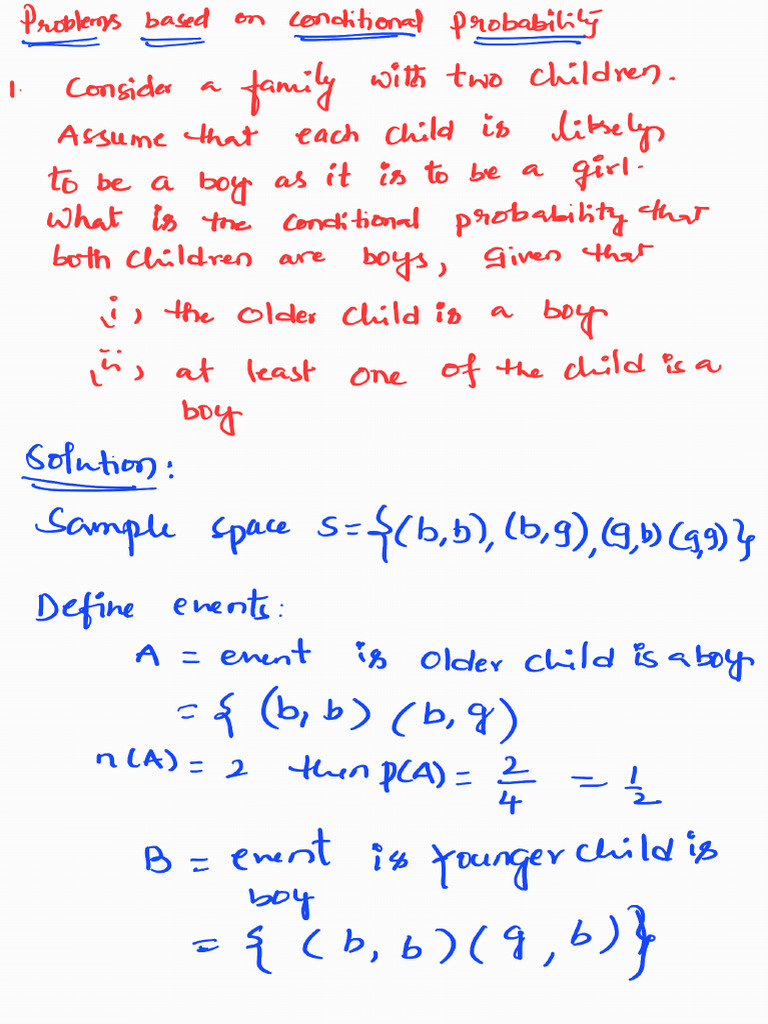 Problems based on conditional probability
1. Consider a family with two children.
Assume that each child is likely
to be a boy as it is to be a girl.
What is the conditional probability that
both children are boys, Given that
(i) the older child is a boy
(ii) at least one of the child is a
boy
Solution:
Sample space S={(b,b),(b,g),(g,b)(g,g)}
Define events:
A = event is older child is a boy
= { (b, b) (b, g)
n(A) = 2 then p(A) = 2/4 = 1/2
B = event is younger child is
boy
= { (b, b) (g, b)}